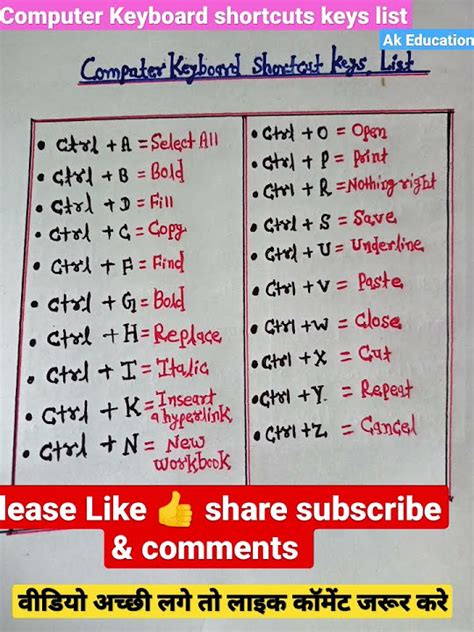 Computer Keyboard shortcuts keys list
Ak Education
Computer Keyboard Shortcut keys List
• Ctrl + A = Select All
• Ctrl + B = Bold
• Ctrl + D = Fill
• Ctrl + C = Copy
• Ctrl + F = Find
• Ctrl + G = Bold
• Ctrl + H = Replace
• Ctrl + I = Italic
• Ctrl + K = Inseart
a hyperlink
• Ctrl + N = New
workbook
• Ctrl + O = Open
• Ctrl + P = Print
• Ctrl + R = Nothing right
• Ctrl + S = Save
• Ctrl + U = Underline
• Ctrl + V = Paste
• Ctrl + W = Close
• Ctrl + X = Cut
• Ctrl + Y. = Repeat
• Ctrl + Z. = Cancel
lease Like 👍 share subscribe
& comments
वीडियो अच्छी लगे तो लाइक कॉमेंट जरूर करे